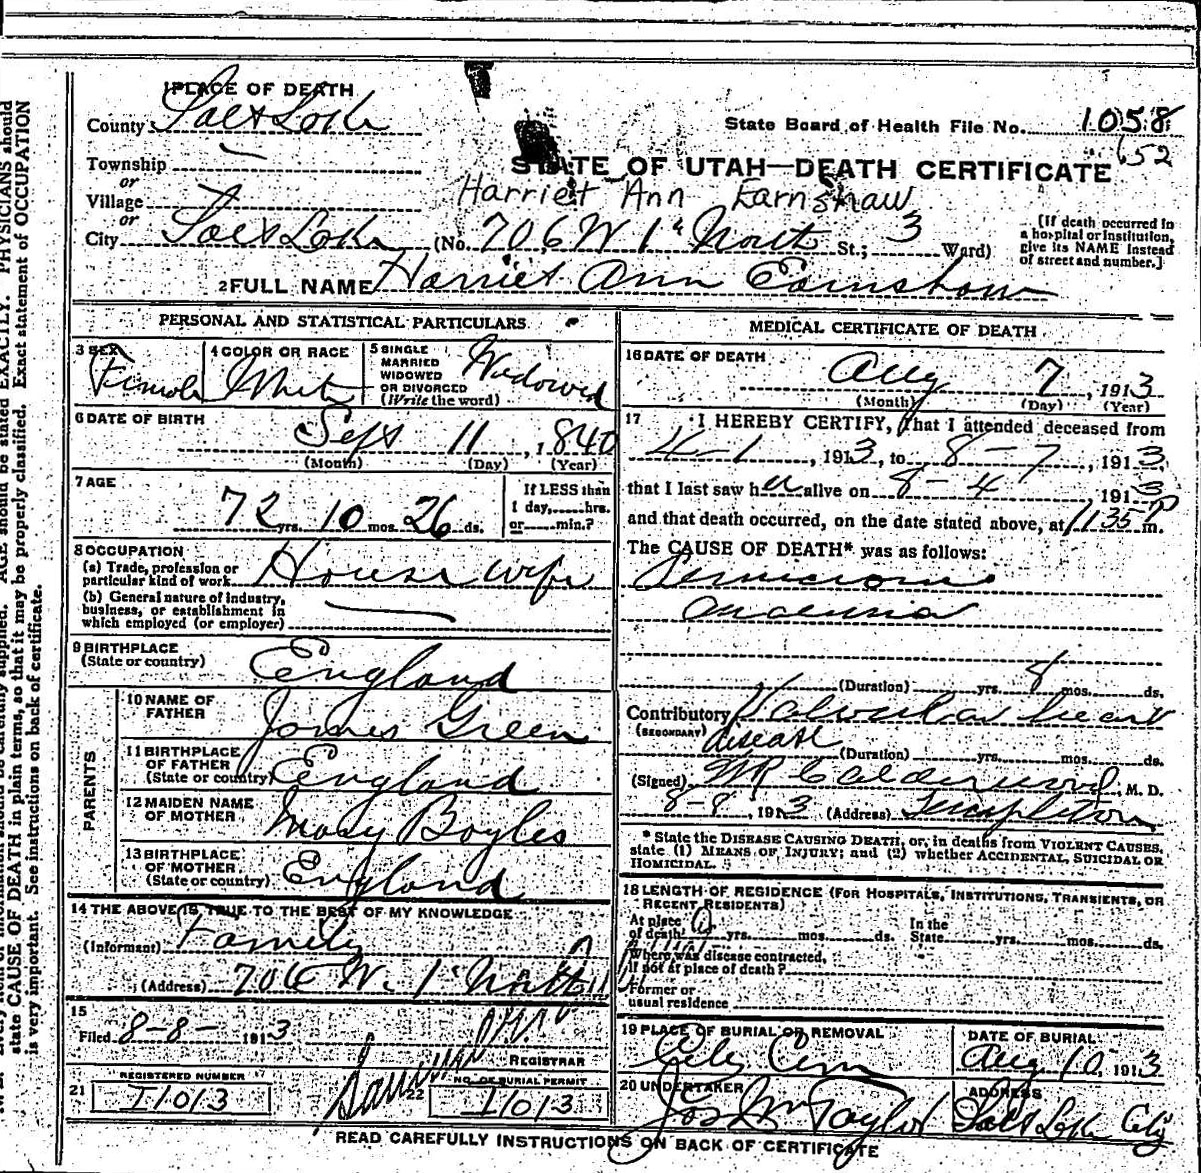 1 PLACE OF DEATH
County Salt Lake
Township —
or
Village
or
City Salt Lake (No. 706 W 1st North St.; 3 Ward)
State Board of Health File No. 1058
652
STATE OF UTAH—DEATH CERTIFICATE
Harriet Ann Earnshaw
[If death occurred in
a hospital or institution,
give its NAME instead
of street and number.]
2 FULL NAME Harriet Ann Earnshaw
PERSONAL AND STATISTICAL PARTICULARS
3 SEX Female
4 COLOR OR RACE White
5 SINGLE
MARRIED
WIDOWED
OR DIVORCED
(Write the word) Widowed
6 DATE OF BIRTH
Sept 11, 1840
(Month) (Day) (Year)
7 AGE
72 yrs. 10 mos. 26 ds.
If LESS than
1 day, hrs.
or min.?
8 OCCUPATION
(a) Trade, profession or
particular kind of work House wife
(b) General nature of industry,
business, or establishment in
which employed (or employer) —
9 BIRTHPLACE
(State or country) England
PARENTS
10 NAME OF
FATHER James Green
11 BIRTHPLACE
OF FATHER
(State or country) England
12 MAIDEN NAME
OF MOTHER Mary Boyles
13 BIRTHPLACE
OF MOTHER
(State or country) England
14 THE ABOVE IS TRUE TO THE BEST OF MY KNOWLEDGE
(Informant) Family
(Address) 706 W. 1st North
15
Filed 8-8- 1913
REGISTRAR
21 REGISTERED NUMBER
I1013
22 NO. OF BURIAL PERMIT
I1013
MEDICAL CERTIFICATE OF DEATH
16 DATE OF DEATH
Aug 7, 1913
(Month) (Day) (Year)
17 I HEREBY CERTIFY, that I attended deceased from
4-1, 1913, to 8-7, 1913
that I last saw her alive on 8-4, 1913
and that death occurred, on the date stated above, at 1135 P m.
The CAUSE OF DEATH* was as follows:
Pernicious
anaemia
(Duration) yrs. 8 mos. ds.
Contributory Valvular heart
(SECONDARY) disease
(Duration) yrs. mos. ds.
(Signed) MR Calderwood, M. D.
8-8, 1913 (Address) Templeton
* State the DISEASE CAUSING DEATH, or, in deaths from VIOLENT CAUSES,
state (1) MEANS OF INJURY; and (2) whether ACCIDENTAL, SUICIDAL OR
HOMICIDAL.
18 LENGTH OF RESIDENCE (FOR HOSPITALS, INSTITUTIONS, TRANSIENTS, OR
RECENT RESIDENTS)
At place
of death yrs. mos. ds.
In the
State yrs. mos. ds.
Where was disease contracted,
if not at place of death?
Former or
usual residence
19 PLACE OF BURIAL OR REMOVAL
City Cem
DATE OF BURIAL
Aug 10 1913
20 UNDERTAKER
Jos Wm Taylor
ADDRESS
Salt Lake City
READ CAREFULLY INSTRUCTIONS ON BACK OF CERTIFICATE
AGE should be stated EXACTLY. PHYSICIANS should
state CAUSE OF DEATH in plain terms, so that it may be properly classified. Exact statement of OCCUPATION
is very important. See instructions on back of certificate.